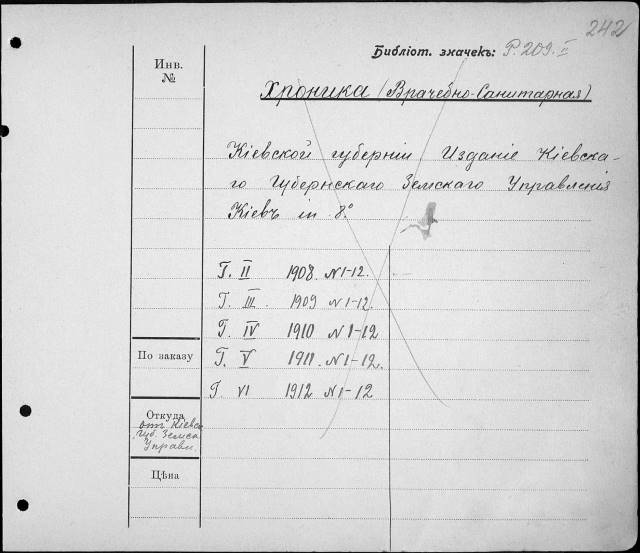 242
Библіот. значекъ: Р. 209. II
Инв.
№
Хроника (Врачебно-Санитарная)
Кіевской губерніи Издание Кіевска-
го Губернскаго Земскаго Управленія
Кіевъ in 8°
Г. II 1908. N 1-12.
Г. III. 1909 N 1-12.
Г. IV 1910 N 1-12
Г. V 1911. N 1-12.
Г. VI 1912 N 1-12
По заказу
Откуда
отъ Кіевск.
Губ. Земск
Управы
Цѣна